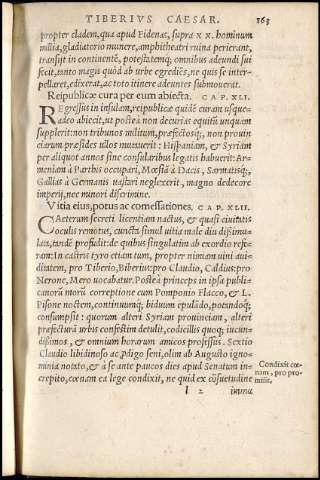 TIBERIVS CAESAR. 163
propter cladem, qua apud Fidenas, supra XX. hominum
millia, gladiatorio munere, amphitheatri ruina perierant,
transijt in continentē, potestatemq; omnibus adeundi sui
fecit, tanto magis quòd ab urbe egrediēs, ne quis se inter-
pellaret, edixerat, ac toto itinere adeuntes submouerat.
Reipublicæ cura per eum abiecta. CAP. XLI.
REgressus in insulam, reipublicæ quidē curam usque-
adeo abiecit, ut posteà non decurias equitū unquam
supplerit: non tribunos militum, præfectosq́;, non prouin
ciarum præsides ullos mutauerit: Hispaniam, & Syriam
per aliquot annos sine consularibus legatis habuerit: Ar-
meniam à Parthis occupari, Mœsiā à Dacis, Sarmatisq́;,
Gallias à Germanis uastari neglexerit, magno dedecore
imperij, nec minori discrimine.
Vitia eius, potus ac comessationes. CAP. XLII.
CAeterum secreti licentiam nactus, & quasi ciuitatis
oculis remotus, cuncta simul uitia male diu dissimu-
lata, tandē profudit: de quibus singulatim ab exordio refe-
ram: In castris tyro etiam tum, propter nimiam uini aui-
ditatem, pro Tiberio, Biberius: pro Claudio, Caldius: pro
Nerone, Mero uocabatur. Posteà princeps in ipsa publi-
corum morū correptione cum Pomponio Flacco, & L.
Pisone noctem, continuumq́; biduum epulādo, potandoq́;
consumpsit: quorum alteri Syriam prouinciam, alteri
præfecturā urbis confestim detulit, codicillis quoq; iucun-
dissimos, & omnium horarum amicos professus. Sextio
Claudio libidinoso ac, pdigo seni, olim ab Augusto igno-
minia notato, & à se ante paucos dies apud Senatum in-
crepito, cœnam ea lege condixit, ne quid ex cōsuetudine
Condixit cœ-
nam, pro pro-
misit.
l 2 immu